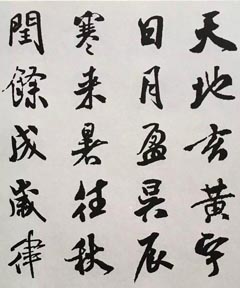 天地玄黄宇
日月盈昃辰
寒来暑往秋
閏餘成歲律